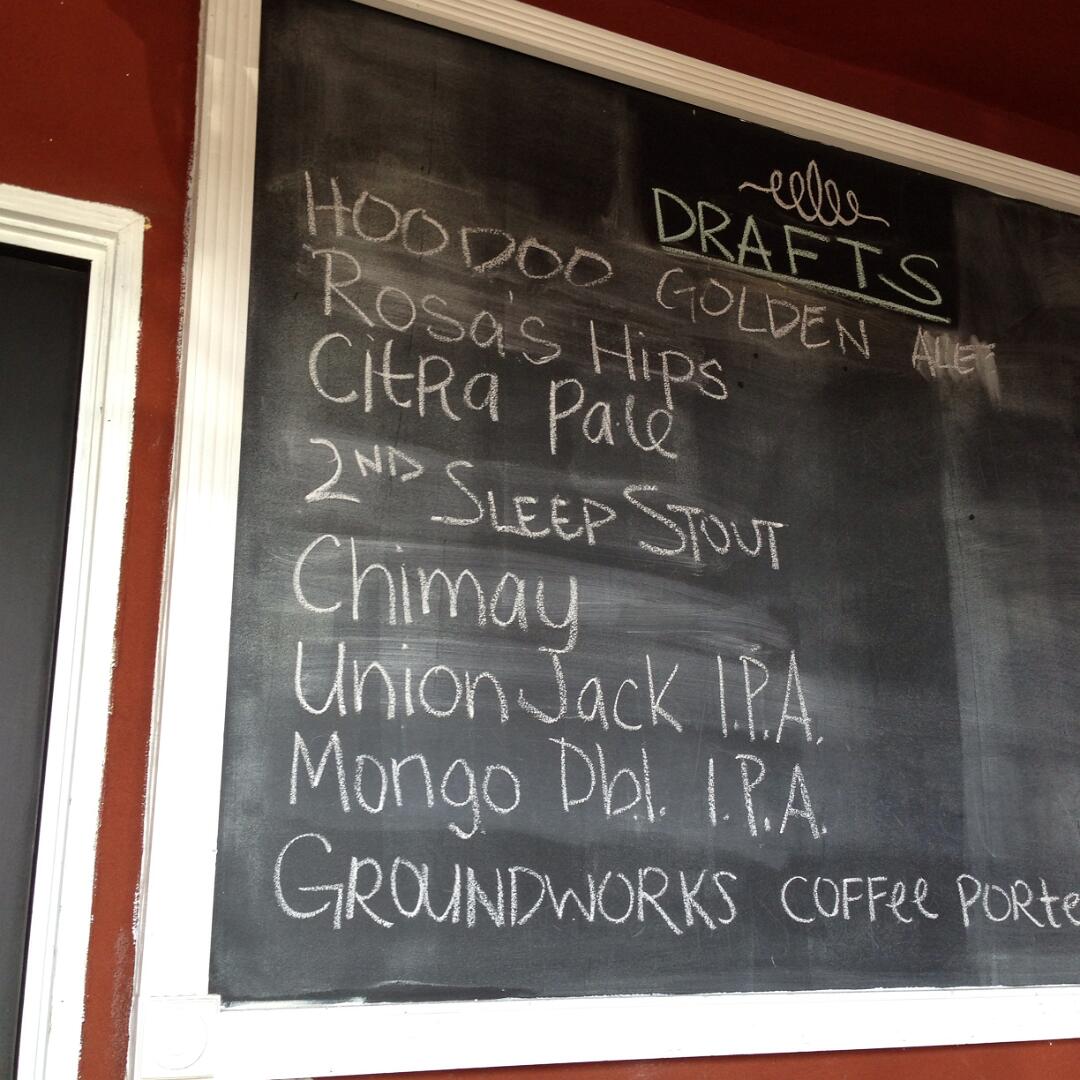 DRAFTS
HOODOO GOLDEN ALE
Rosa's Hips
CitRa Pale
2ND SLEEP STOUT
Chimay
Union Jack I.P.A.
Mongo Dbl. I.P.A.
GROUNDWORKS COFFee PORte